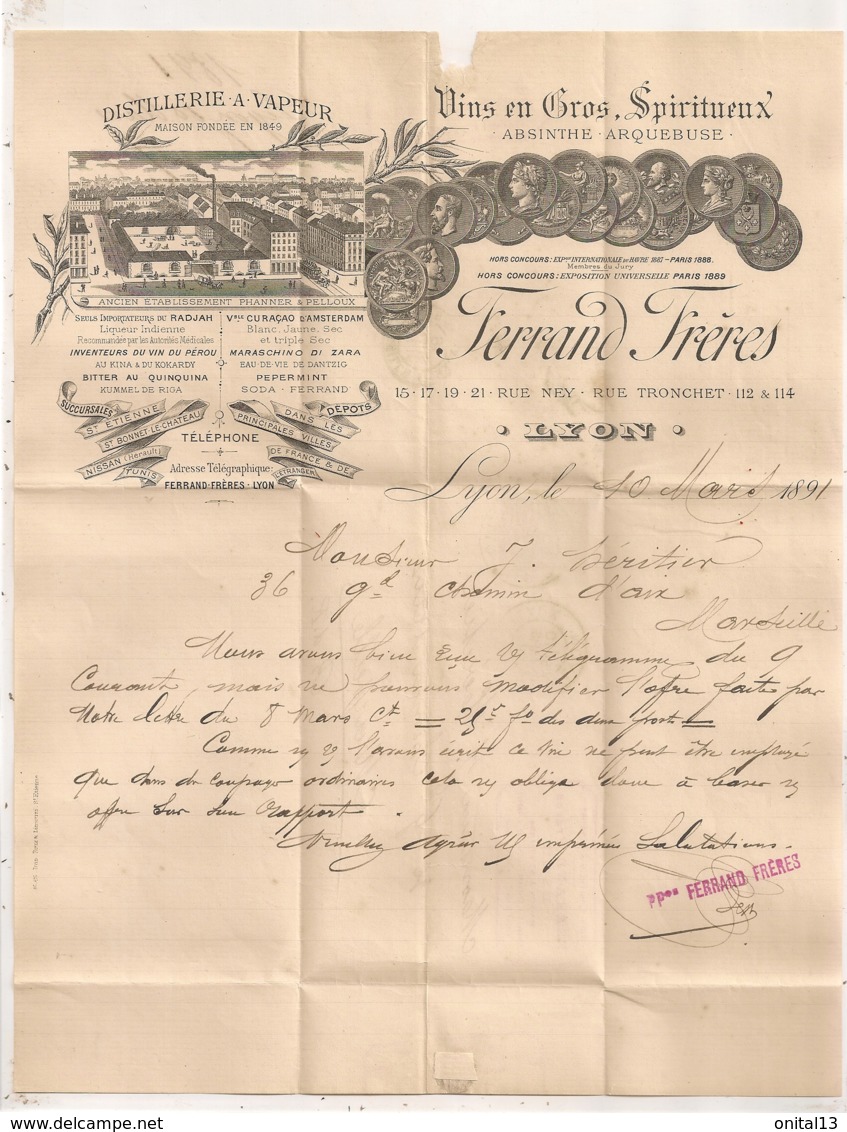 DISTILLERIE·A·VAPEUR
MAISON FONDÉE EN 1849
ANCIEN ÉTABLISSEMENT PHANNER & PELLOUX
SEULS IMPORTATEURS DU RADJAH
Liqueur Indienne
Recommandée par les Autorités Médicales
INVENTEURS DU VIN DU PÉROU
AU KINA & DU KOKARDY
BITTER AU QUINQUINA
KUMMEL DE RIGA
VBLE CURAÇAO D'AMSTERDAM
Blanc, Jaune, Sec
et triple Sec
MARASCHINO DI ZARA
EAU-DE-VIE DE DANTZIG
PEPERMINT
SODA-FERRAND
SUCCURSALES
ST ETIENNE
ST BONNET-LE-CHATEAU
NISSAN (Hérault)
TUNIS
DÉPOTS
DANS LES
PRINCIPALES VILLES
DE FRANCE & DE
L'ETRANGER
TÉLÉPHONE
Adresse Télégraphique:
FERRAND-FRÈRES-LYON
Vins en Gros, Spiritueux
·ABSINTHE·ARQUEBUSE·
HORS CONCOURS: EXPON INTERNATIONALE DU HAVRE 1887-PARIS 1888.
Membres du Jury
HORS CONCOURS: EXPOSITION UNIVERSELLE PARIS 1889
Ferrand Frères
15·17·19·21·RUE NEY·RUE TRONCHET·112 & 114
·LYON·
Lyon, le 10 Mars 1891
Monsieur J. Héritier
36 gd chemin d'aix
Marseille
Nous avons bien reçu V/ télégramme du 9
Courant, mais ne pouvons modifier l'offre faite par
Notre lettre du 8 Mars ct = 25f fo des deux ports =
Comme V l'avons écrit ce vin ne peut être employé
que dans du coupage ordinaires cela oblige donc à baser
offre sur son rapport.
Veuillez agréer empressées Salutations.
ppon FERRAND FRÈRES